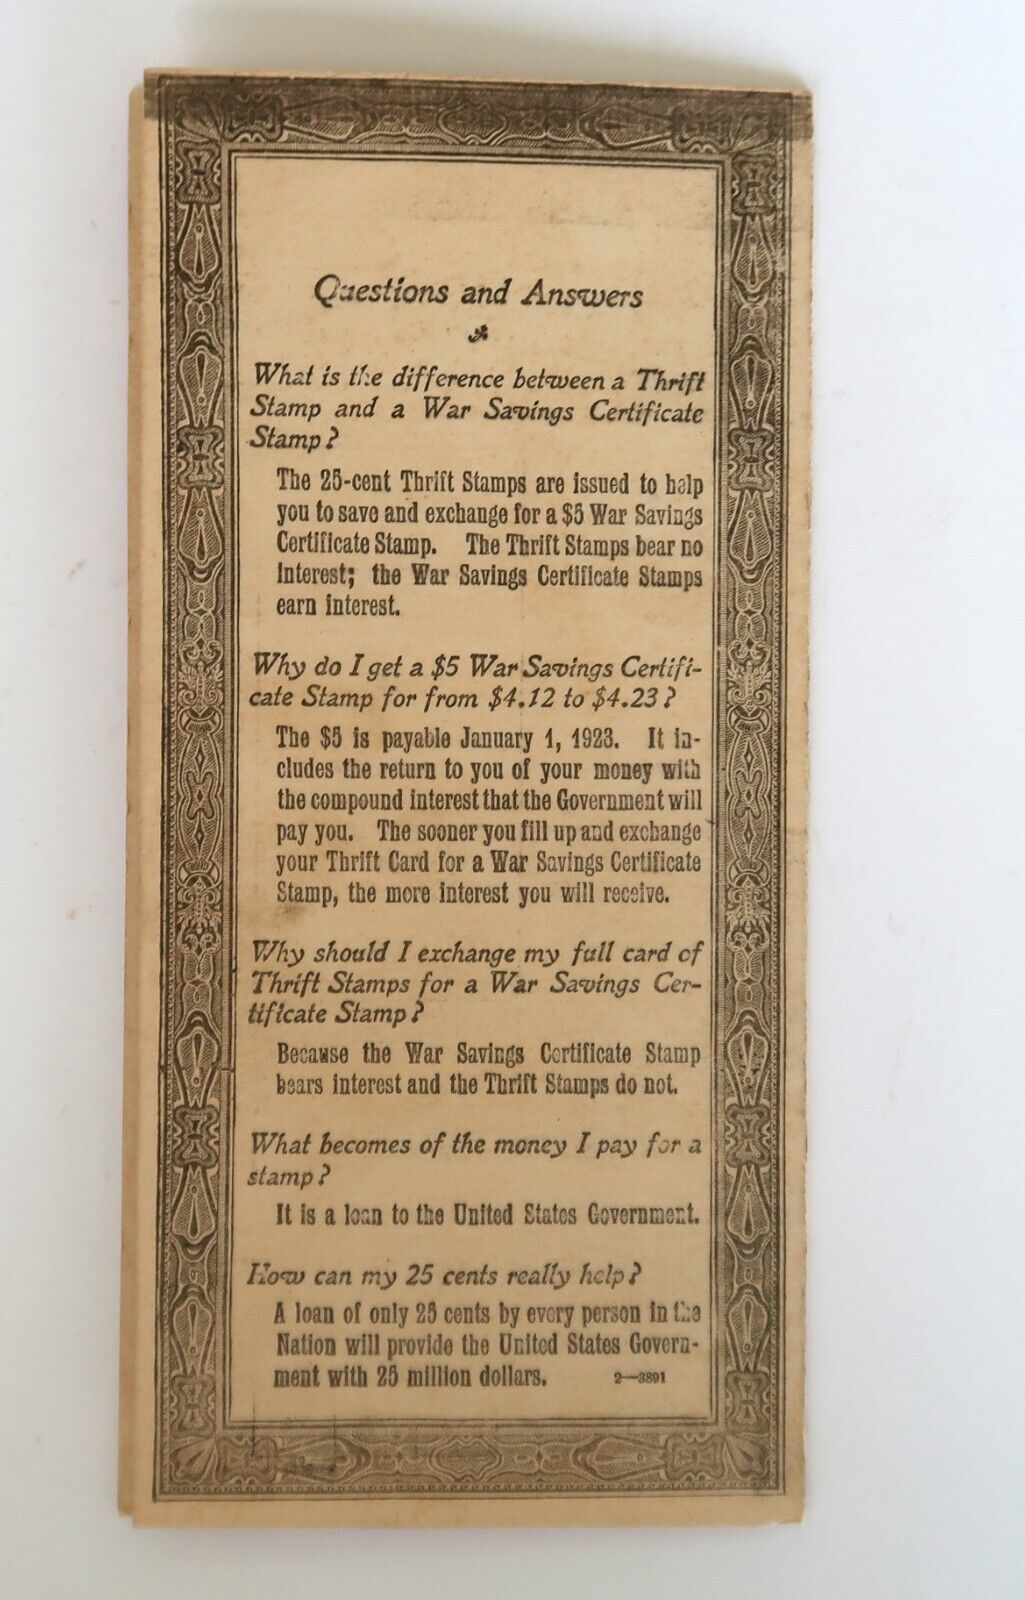 Questions and Answers
What is the difference between a Thrift
Stamp and a War Savings Certificate
Stamp?
The 25-cent Thrift Stamps are issued to help
you to save and exchange for a $5 War Savings
Certificate Stamp. The Thrift Stamps bear no
interest; the War Savings Certificate Stamps
earn interest.
Why do I get a $5 War Savings Certifi-
cate Stamp for from $4.12 to $4.23?
The $5 is payable January 1, 1923. It in-
cludes the return to you of your money with
the compound interest that the Government will
pay you. The sooner you fill up and exchange
your Thrift Card for a War Savings Certificate
Stamp, the more interest you will receive.
Why should I exchange my full card of
Thrift Stamps for a War Savings Cer-
tificate Stamp?
Because the War Savings Certificate Stamp
bears interest and the Thrift Stamps do not.
What becomes of the money I pay for a
stamp?
It is a loan to the United States Government.
How can my 25 cents really help?
A loan of only 25 cents by every person in the
Nation will provide the United States Govern-
ment with 25 million dollars. 2—3891